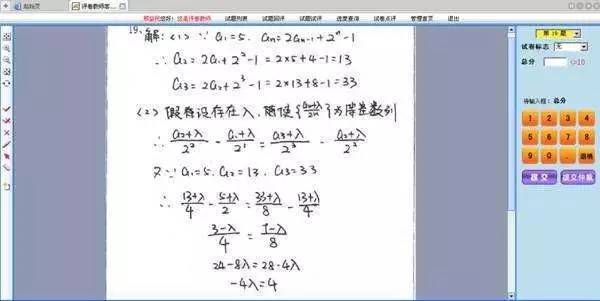 起始页
评卷教师客...
您好! 试题列表 试题回评 试题列表 试题试评 进度查询 试卷点评 管理首页 退出
19.解:(1)∵ a₁=5. aₙ=2aₙ₋₁+2ⁿ-1
∴ a₂=2a₁+2²-1=2×5+4-1=13
a₃=2a₂+2³-1=2×13+8-1=33
(2) 假设存在λ,使{(aₙ+λ)/2ⁿ}为等差数列
∴ (a₂+λ)/2² - (a₁+λ)/2¹ = (a₃+λ)/2³ - (a₂+λ)/2²
又∵ a₁=5. a₂=13. a₃=33
∴ (13+λ)/4 - (5+λ)/2 = (33+λ)/8 - (13+λ)/4
(3-λ)/4 = (7-λ)/8
24-8λ=28-4λ
-4λ=4
第 19 题
试卷标志 无
总分 <=10
待输入框: 总分
1 2 3 4
5 6 7 8
9 0 . 退格
提 交 提交仲裁